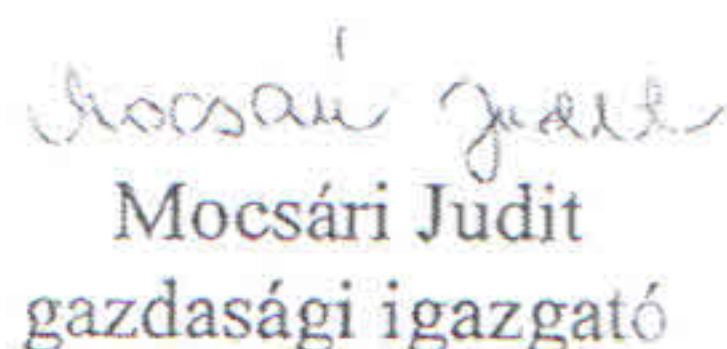 Mocsári Judit
Mocsári Judit
gazdasági igazgató